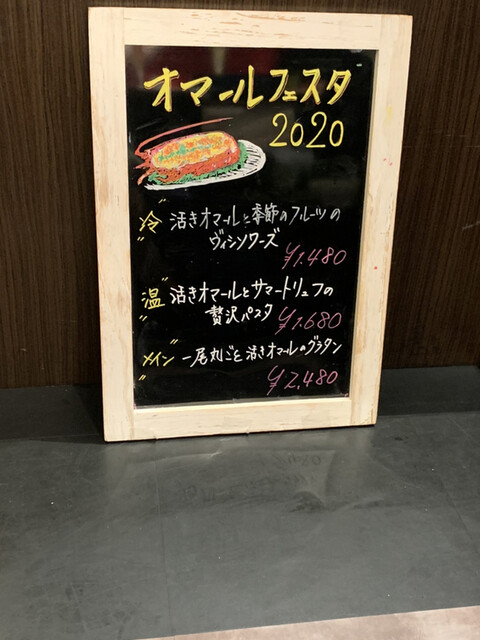 オマールフェスタ
2020
"冷" 活きオマールと季節のフルーツの
ヴィシソワーズ
¥1,480
"温" 活きオマールとサマートリュフの
贅沢パスタ ¥1,680
"メイン" 一尾丸ごと活きオマールのグラタン
¥2,480